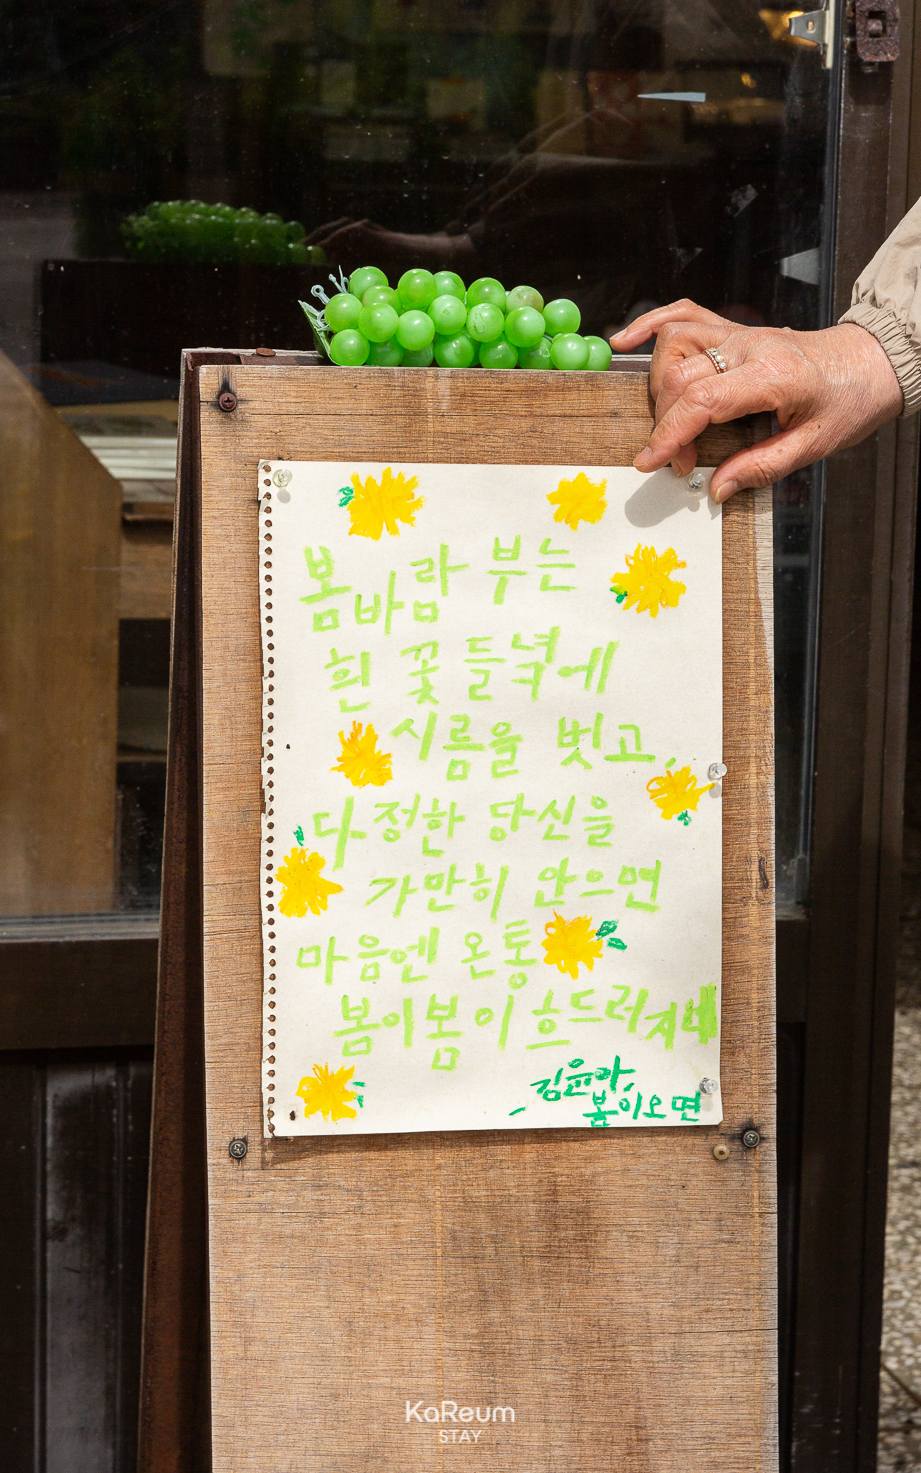 봄바람 부는
흰 꽃 들녘에
시름을 벗고,
다정한 당신을
가만히 안으면
마음엔 온통
봄이봄이 흐드러지네
김윤아,
봄이오면
KaReum
STAY